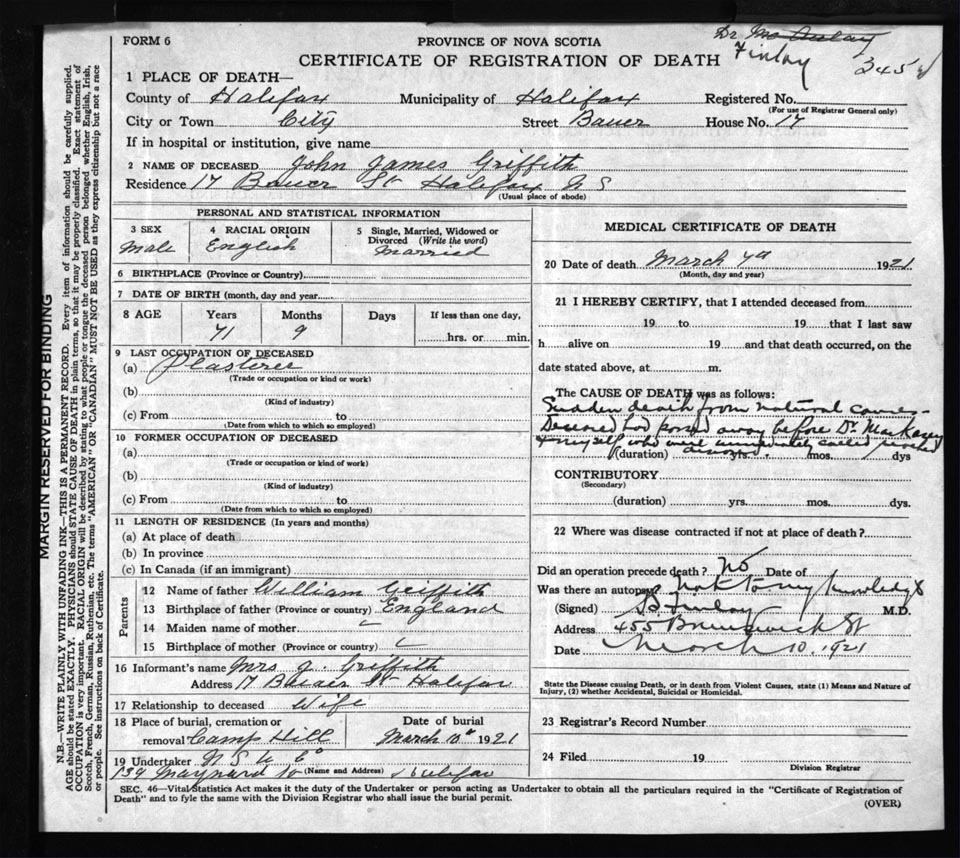 FORM 6
PROVINCE OF NOVA SCOTIA
Dr
Finlay
345
CERTIFICATE OF REGISTRATION OF DEATH
1 PLACE OF DEATH—
County of Halifax Municipality of Halifax Registered No.
(For use of Registrar General only)
City or Town City Street Bauer House No. 17
If in hospital or institution, give name
2 NAME OF DECEASED John James Griffith
Residence 17 Bauer St Halifax N S
(Usual place of abode)
PERSONAL AND STATISTICAL INFORMATION
3 SEX 4 RACIAL ORIGIN 5 Single, Married, Widowed or
Divorced (Write the word)
Male English Married
6 BIRTHPLACE (Province or Country)
7 DATE OF BIRTH (month, day and year
8 AGE Years Months Days If less than one day,
71 9 hrs. or min.
9 LAST OCCUPATION OF DECEASED
(a) Plasterer
(Trade or occupation or kind or work)
(b)
(Kind of industry)
(c) From to
(Date from which to which so employed)
10 FORMER OCCUPATION OF DECEASED
(a)
(Trade or occupation or kind of work)
(b)
(Kind of industry)
(c) From to
(Date from which to which so employed)
11 LENGTH OF RESIDENCE (In years and months)
(a) At place of death
(b) In province
(c) In Canada (if an immigrant)
Parents
12 Name of father William Griffith
13 Birthplace of father (Province or country) England
14 Maiden name of mother
15 Birthplace of mother (Province or country)
16 Informant's name Mrs J. Griffith
Address 17 Bauer St Halifax
17 Relationship to deceased Wife
18 Place of burial, cremation or Date of burial
removal Camp Hill March 10th 1921
19 Undertaker N S U Co
139 Maynard St (Name and Address) Halifax
MEDICAL CERTIFICATE OF DEATH
20 Date of death March 7th 1921
(Month, day and year)
21 I HEREBY CERTIFY, that I attended deceased from
19 to 19 that I last saw
h alive on 19 and that death occurred, on the
date stated above, at m.
The CAUSE OF DEATH was as follows:
Sudden death from natural causes -
Deceased had passed away before Dr. MacKasey
& myself who were immediately called reached
(duration) yrs. mos. dys
CONTRIBUTORY
(Secondary)
(duration) yrs. mos. dys.
22 Where was disease contracted if not at place of death?
Did an operation precede death? No Date of
Was there an autopsy not to my knowledge
(Signed) Finlay M.D.
Address 455 Brunswick St
Date March 10, 1921
State the Disease causing Death, or in death from Violent Causes, state (1) Means and Nature of
Injury, (2) whether Accidental, Suicidal or Homicidal.
23 Registrar's Record Number
24 Filed 19
Division Registrar
SEC. 46—Vital Statistics Act makes it the duty of the Undertaker or person acting as Undertaker to obtain all the particulars required in the "Certificate of Registration of
Death" and to fyle the same with the Division Registrar who shall issue the burial permit.
(OVER)
MARGIN RESERVED FOR BINDING
N.B.—WRITE PLAINLY WITH UNFADING INK—THIS IS A PERMANENT RECORD. Every item of information should be carefully supplied.
AGE should be stated EXACTLY. PHYSICIANS should STATE CAUSE OF DEATH in plain terms, so that it may be properly classified. Exact statement of
OCCUPATION is very important. RACIAL ORIGIN will be described by stating to what people or tongue the deceased person belonged whether English, Irish,
Scotch, French, German, Russian, Ruthenian, etc. The terms "AMERICAN" OR "CANADIAN" MUST NOT BE USED as they express citizenship but not a race
or people. See instructions on back of Certificate.